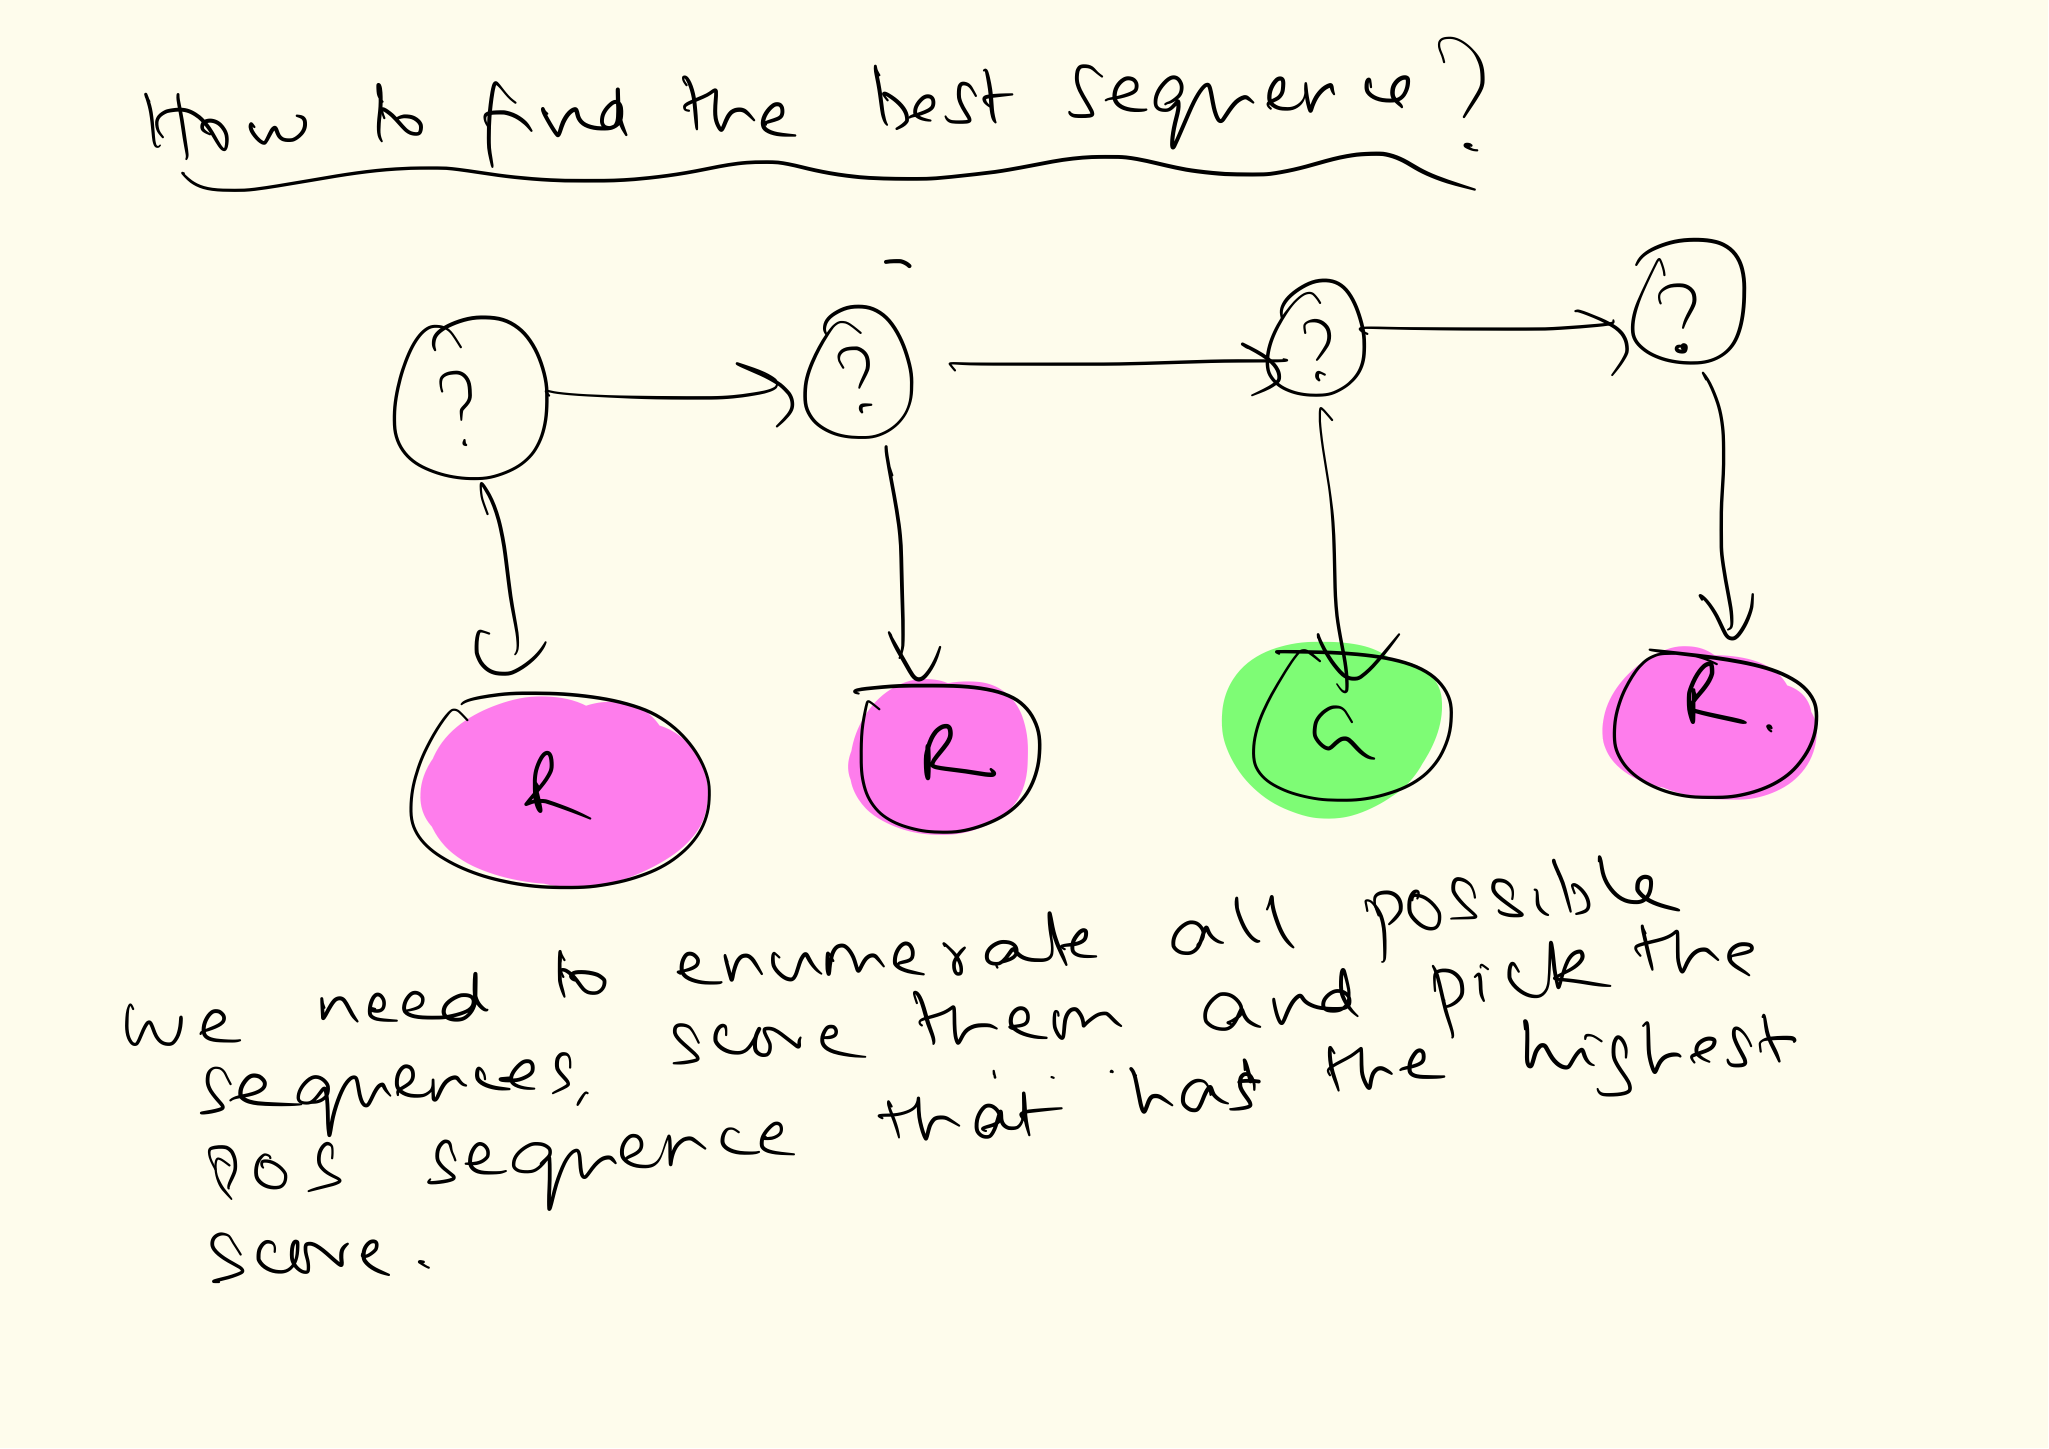 How to find the best sequence?
? ? ? ?
R R G R.
we need to enumerate all possible
sequences, score them and pick the
POS sequence that has the highest
score.